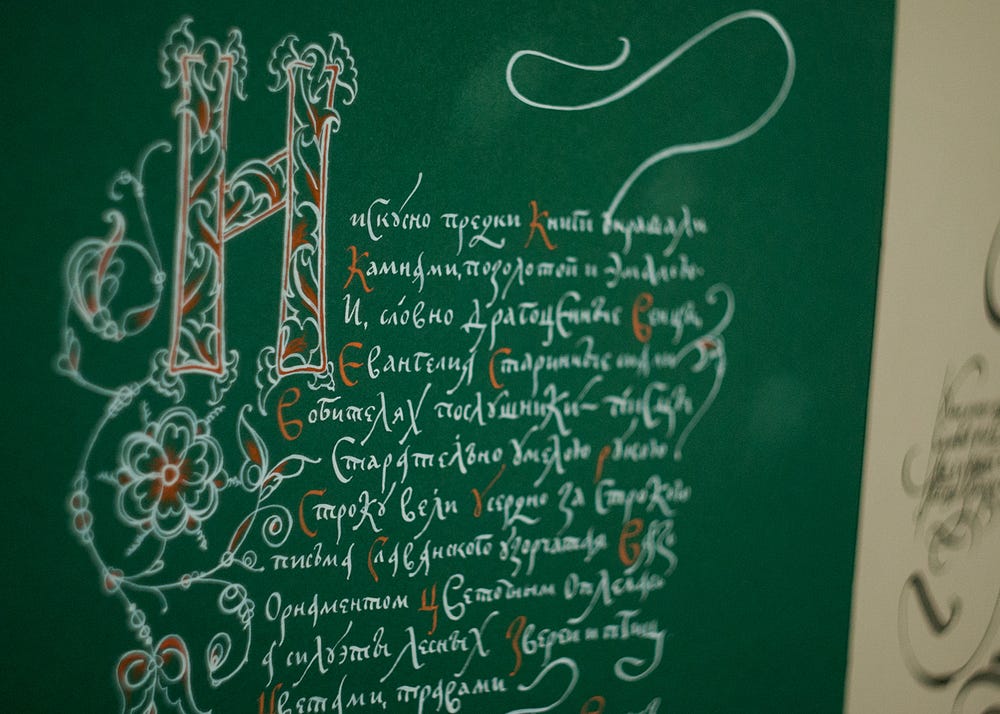 И искусно предки Книги украшали
Камнями, позолотой и эмалью.
И, словно драгоценные Венцы,
Евангелия Старинные сияли
В обителях послушники – писцы
Старательно умелою рукою
Строку вели Усердно за Строкою
письма Славянского узорчатая Вязь
Орнаментом Цветочным Оплелась
А силуэты лесных Зверей и птиц
Цветами, травами